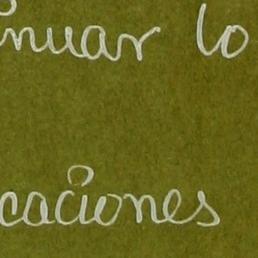 nuar lo
caciones